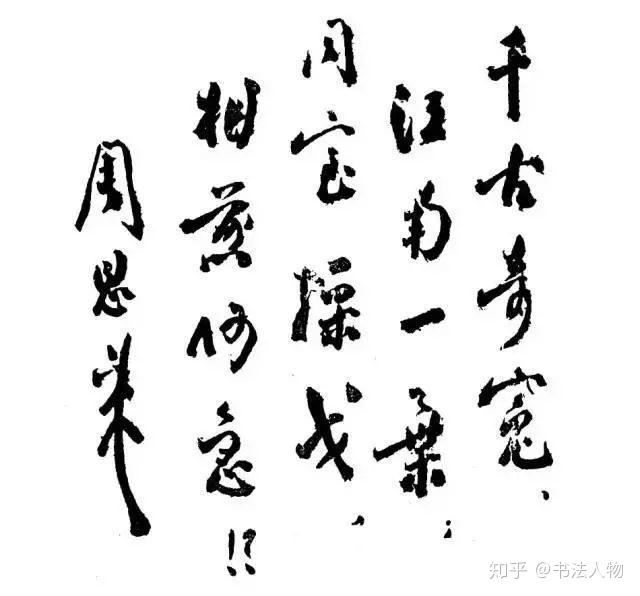 千古奇冤、
江南一葉；
同室操戈，
相煎何急！！
周恩来
知乎 @书法人物